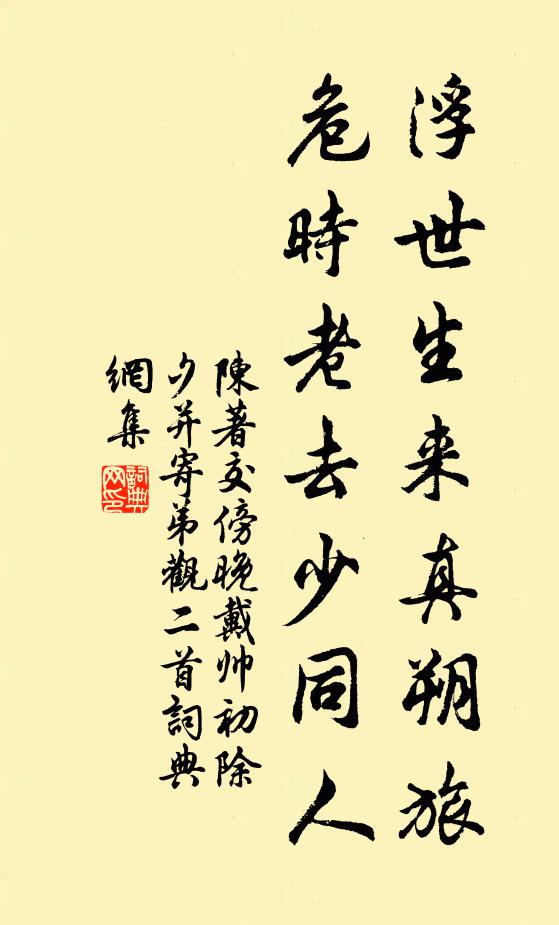 浮世生来真朔旅
危時老去少同人
陳著交傍晚戴帅初除
夕并寄弟觀二首詞典
網集
詞典
网印